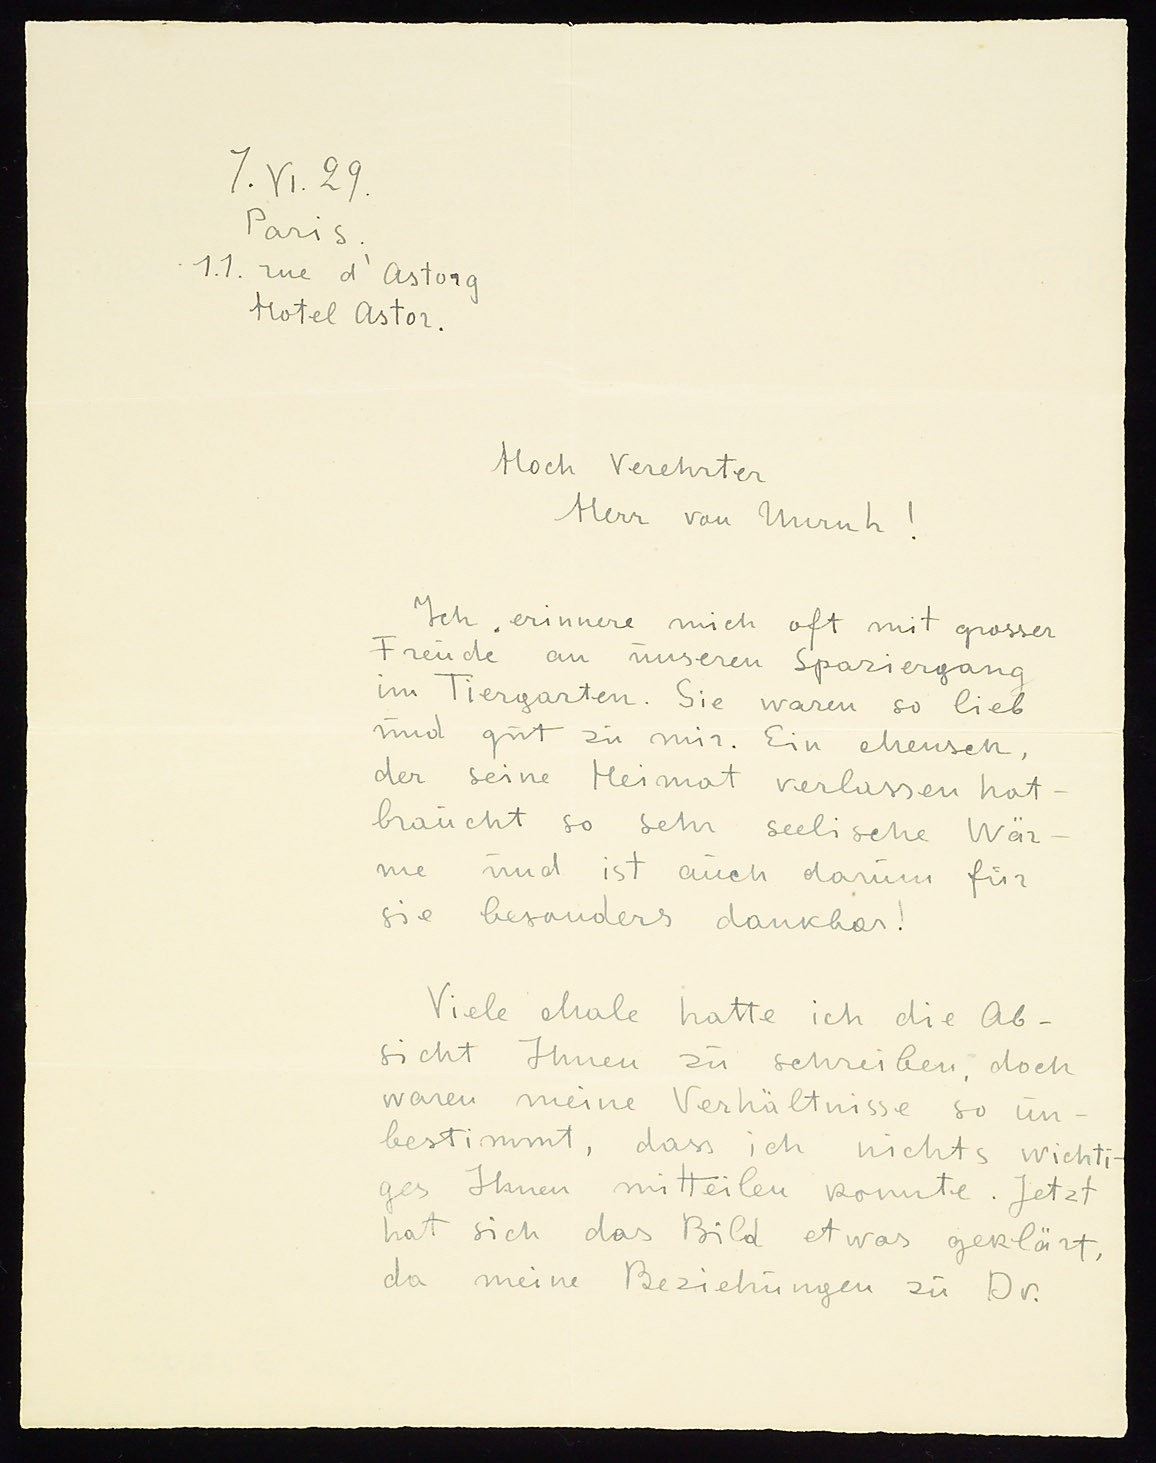 7. VI. 29.
Paris.
11. rue d'Astorg
Hotel Astor.
Hoch Verehrter
Herr von Unruh!
Ich erinnere mich oft mit grosser
Freude an unseren Spaziergang
im Tiergarten. Sie waren so lieb
und gut zu mir. Ein Mensch,
der seine Heimat verlassen hat –
braucht so sehr seelische Wär–
me und ist auch darum für
sie besonders dankbar!
Viele Male hatte ich die Ab–
sicht Ihnen zu schreiben, doch
waren meine Verhältnisse so un–
bestimmt, dass ich nichts wichti–
ges Ihnen mitteilen konnte. Jetzt
hat sich das Bild etwas geklärt,
da meine Beziehungen zu Dr.